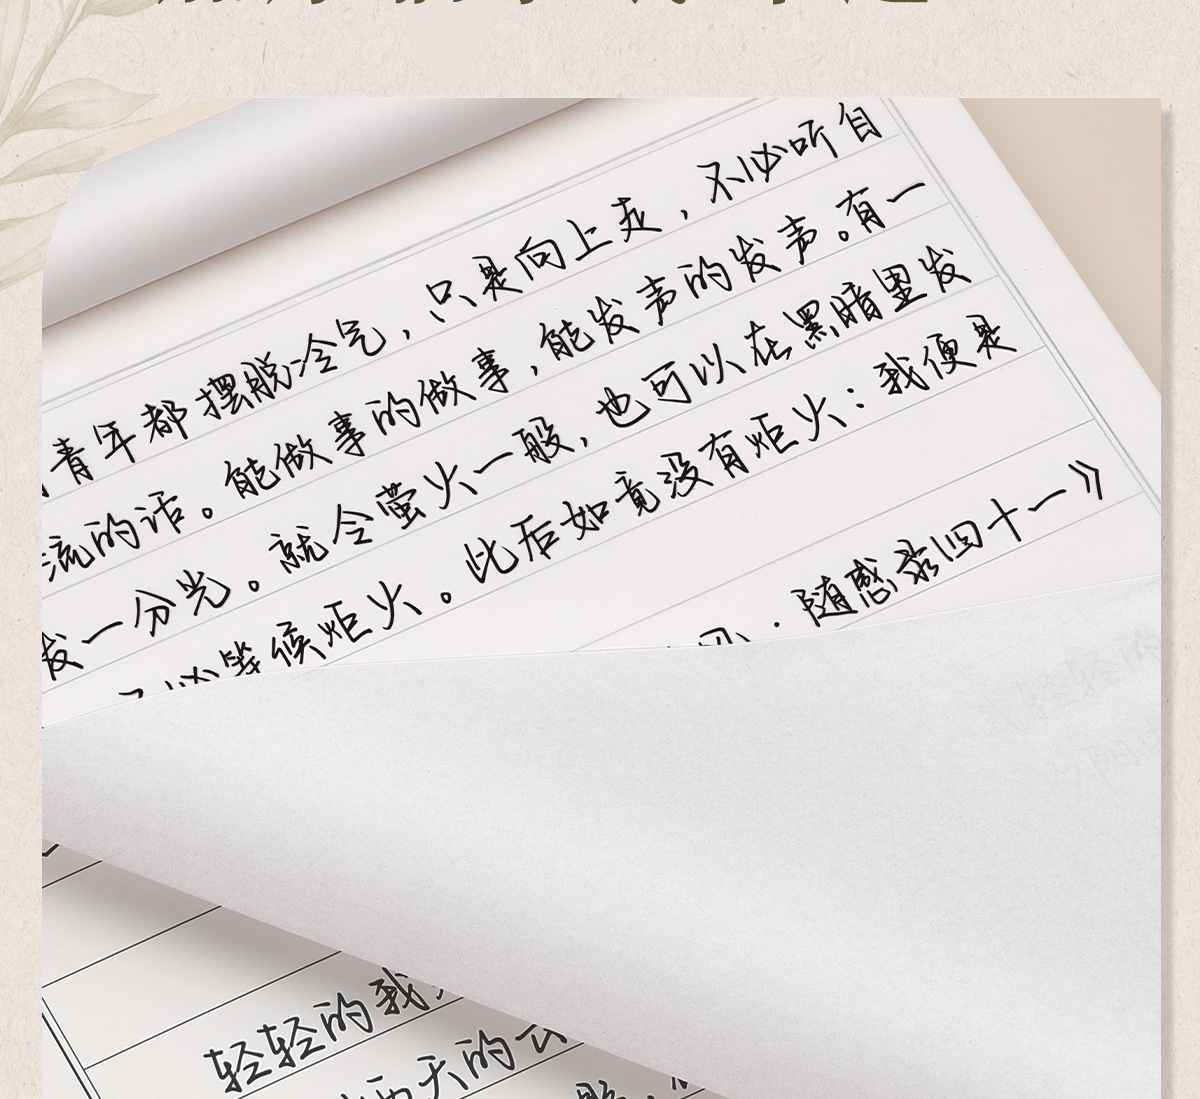 青年都摆脱冷气，只是向上走，不必听自
流的话。能做事的做事，能发声的发声。有一
发一分光。就令萤火一般，也可以在黑暗里发
不必等候炬火。此后如竟没有炬火：我便是
随感录四十一》
轻轻的我
西天的云